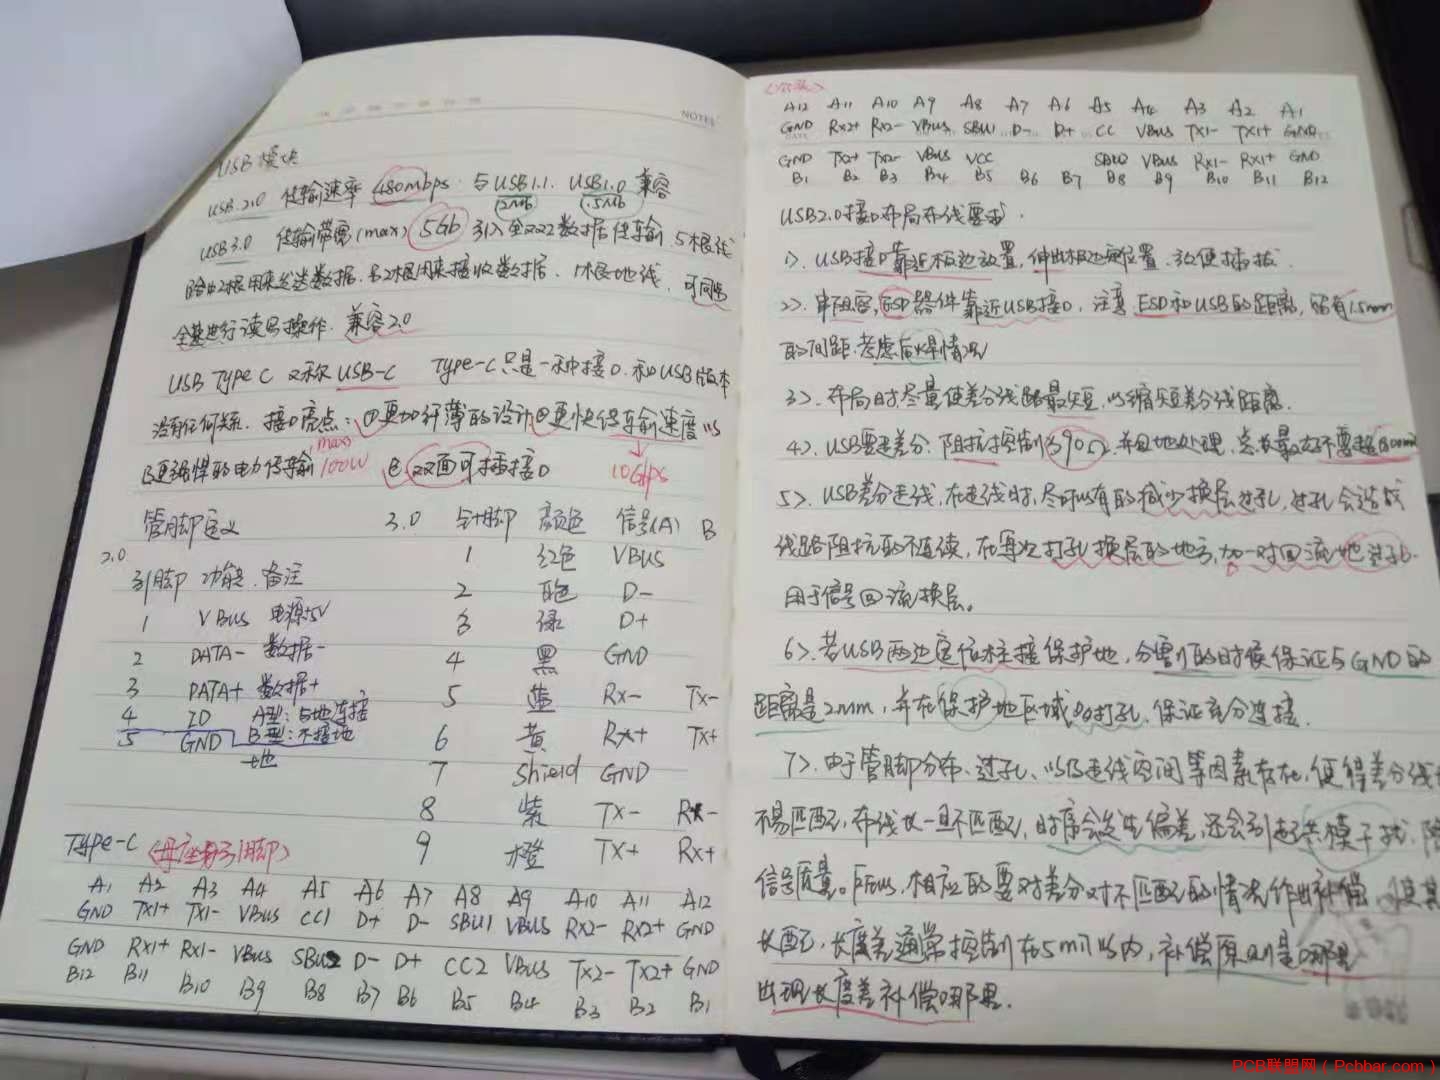 NOTES
USB模块
USB 2.0 传输速率 480mbps. 与USB1.1. USB1.0 兼容
12Mb 1.5Mb
USB3.0 传输带宽(max) 5Gb 引入全双工数据传输. 5根线
路中2根用来发送数据, 另2根用来接收数据. 1根地线, 可同步
全速进行读写操作. 兼容2.0
USB Type C 又称 USB-C Type-C只是一种接口, 和USB版本
没有任何关系. 接口亮点: ①更加纤薄的设计②更快传输速度
max 100W 10Gbps
更强悍的电力传输 双面可插接口
管脚定义
2.0
引脚 功能 备注
1 VBus 电源+5V
2 DATA- 数据-
3 DATA+ 数据+
4 ID A型: 与地连接
B型: 不接地
5 GND 地
3.0 针脚 颜色 信号(A) B
1 红色 VBUS
2 白色 D-
3 绿 D+
4 黑 GND
5 蓝 Rx- Tx-
6 黄 Rx+ Tx+
7 Shield GND
8 紫 Tx- Rx-
9 橙 Tx+ Rx+
Type-C (母座引脚)
A1 A2 A3 A4 A5 A6 A7 A8 A9 A10 A11 A12
GND TX1+ TX1- VBUS CC1 D+ D- SBU1 VBUS RX2- RX2+ GND
GND RX1+ RX1- VBus SBU2 D- D+ CC2 VBus TX2- TX2+ GND
B12 B11 B10 B9 B8 B7 B6 B5 B4 B3 B2 B1
A12 A11 A10 A9 A8 A7 A6 A5 A4 A3 A2 A1
GND RX2+ RX2- VBUS SBU1 D- D+ CC VBUS TX1- TX1+ GND
GND TX2+ TX2- VBUS VCC SBU2 VBUS RX1- RX1+ GND
B1 B2 B3 B4 B5 B6 B7 B8 B9 B10 B11 B12
USB2.0接口布局布线要求.
1>. USB接口靠近板边放置, 伸出板边位置. 方便插拔.
2>. 串阻容, ESD器件靠近USB接口, 注意 ESD和USB的距离, 留有1.5mm
的间距, 考虑后焊情况
3>. 布局时, 尽量使差分线路最短, 以缩短差分线距离.
4>. USB要走差分, 阻抗控制为90Ω, 并包地处理, 总长最好不要超1800mil
5>. USB差分走线, 在走线时, 尽可以有的减少换层过孔, 过孔会造成
线路阻抗的不连续, 在每次打孔换层的地方, 加一对回流地过孔.
用于信号回流换层.
6>. 若USB两边定位柱接保护地, 分割的时候保证与GND的
距离是2mm, 并在保护地区域多打孔, 保证充分连接.
7>. 由于管脚分布、过孔、以及走线空间等因素存在, 使得差分线
不易匹配, 而线长一旦不匹配, 时序会发生偏差, 还会引起共模干扰,
信号质量。所以, 相应的要对差分对不匹配的情况作出补偿, 使其
长匹配, 长度差通常控制在5mil以内, 补偿原则是哪里
出现长度差补偿哪里.
PCB联盟网（Pcbbar.com）